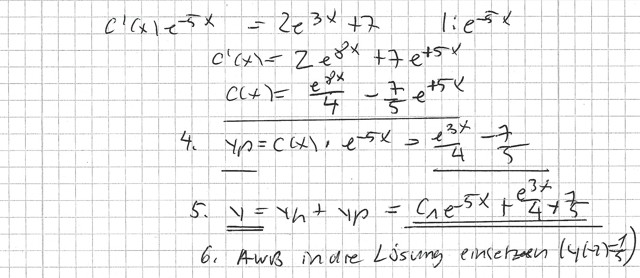 C'(x) e^-5x = 2e^3x + 7 |: e^-5x
C'(x) = 2 e^8x + 7 e^+5x
C(x) = e^8x/4 - 7/5 e^+5x
4. yp = C(x) · e^-5x = e^3x/4 - 7/5
5. y = yh + yp = C1 e^-5x + e^3x/4 + 7/5
6. AWB in die Lösung einsetzen (y(-2)=1/5)